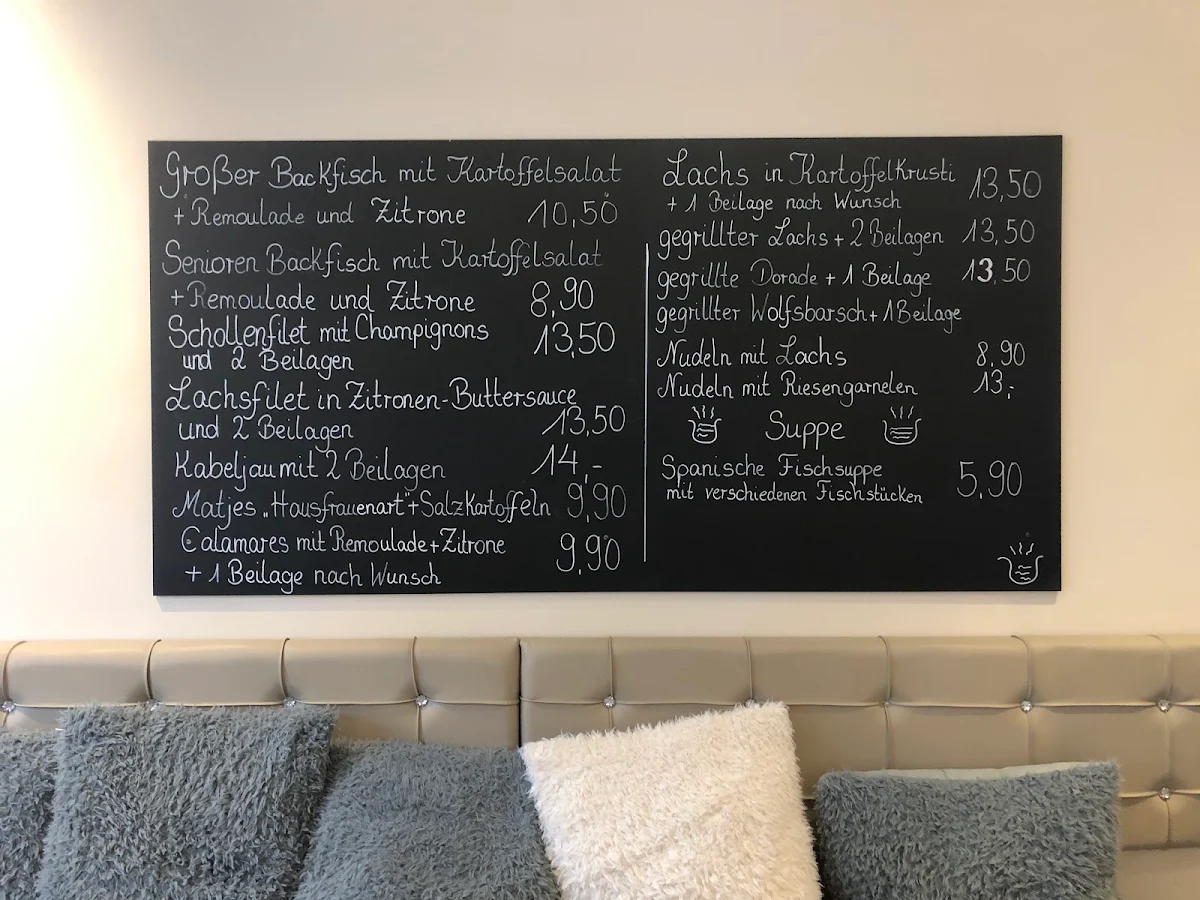 Großer Backfisch mit Kartoffelsalat
+ Remoulade und Zitrone 10,50
Senioren Backfisch mit Kartoffelsalat
+ Remoulade und Zitrone 8,90
Schollenfilet mit Champignons 13,50
und 2 Beilagen
Lachsfilet in Zitronen-Buttersauce
und 2 Beilagen 13,50
Kabeljau mit 2 Beilagen 14,-
Matjes „Hausfrauenart"+Salzkartoffeln 9,90
Calamares mit Remoulade+Zitrone 9,90
+ 1 Beilage nach Wunsch
Lachs in Kartoffelkrusti 13,50
+ 1 Beilage nach Wunsch
gegrillter Lachs + 2 Beilagen 13,50
gegrillte Dorade + 1 Beilage 13,50
gegrillter Wolfsbarsch + 1 Beilage
Nudeln mit Lachs 8,90
Nudeln mit Riesengarnelen 13,-
Suppe
Spanische Fischsuppe 5,90
mit verschiedenen Fischstücken